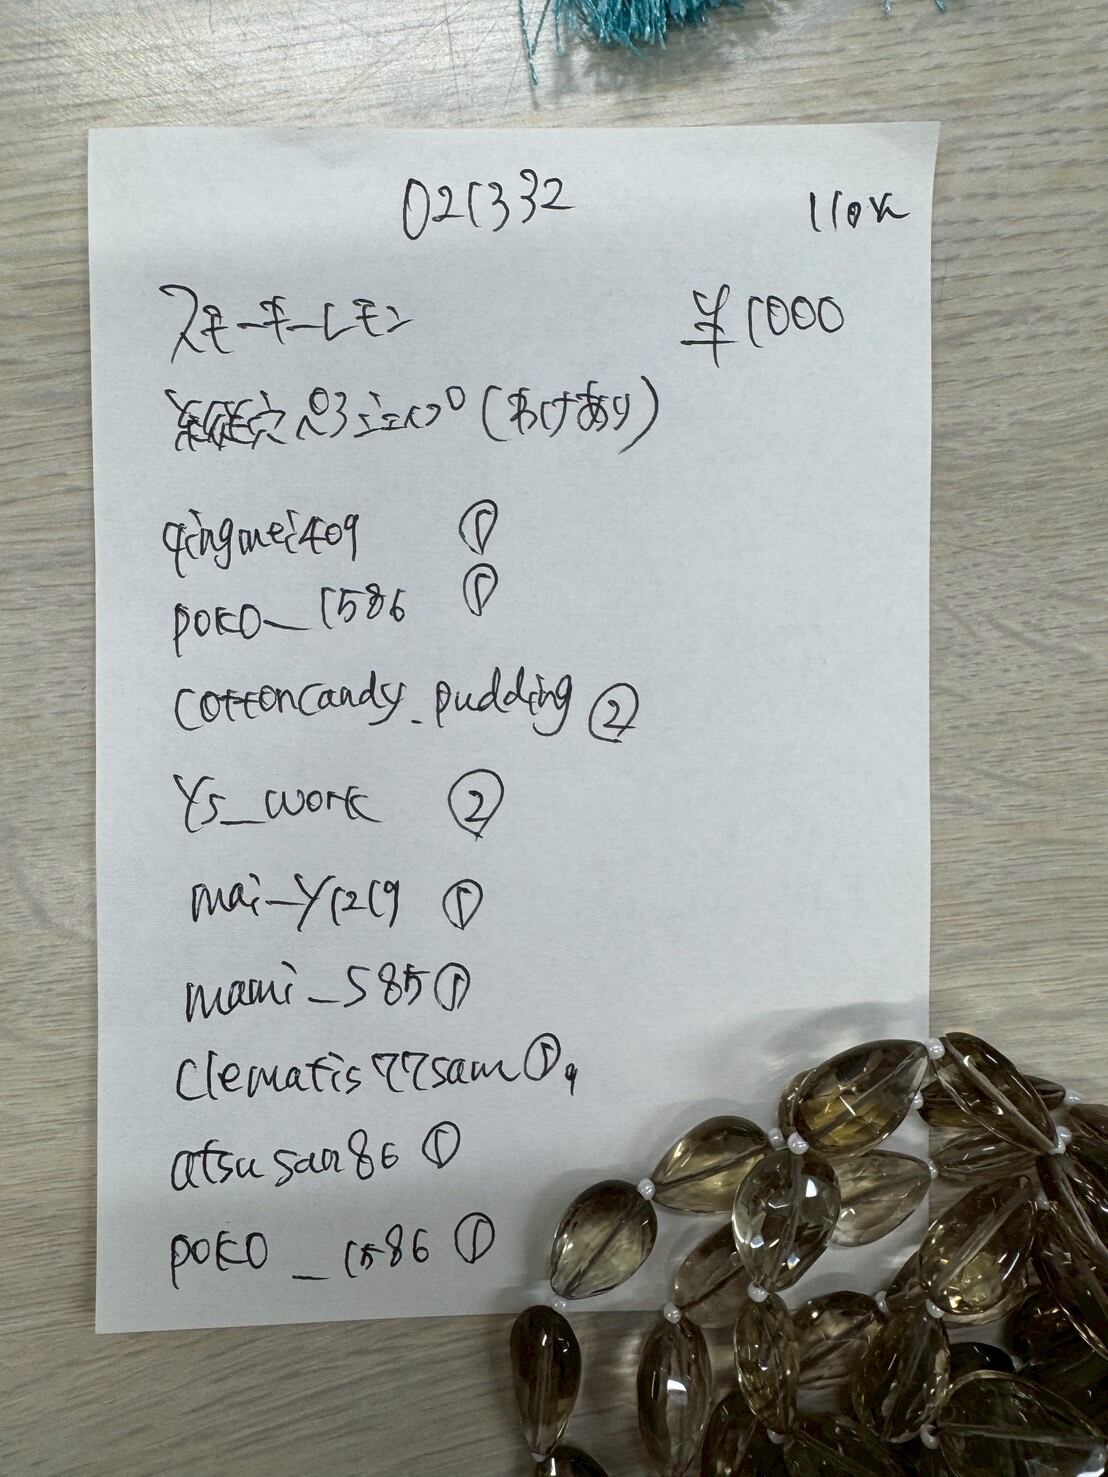 021332
110x
スモーキーレモン ¥1000
縦穴 (わけあり)
qingmei409 ①
poko_1586 ①
cottoncandy_pudding ②
Ys_work ②
mai_y1219 ①
mami_585 ①
clematis77sam ①
atsusan86 ①
poko_1586 ①